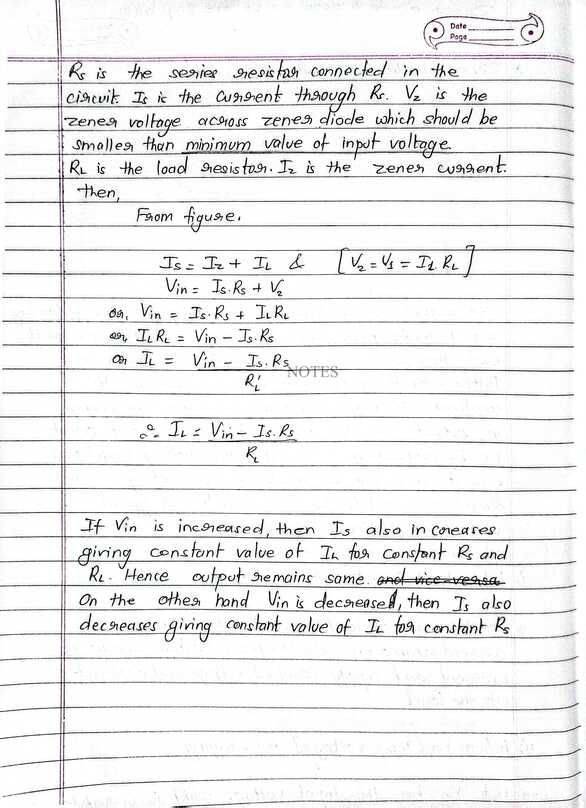 Date
Page
Rs is the series resistor connected in the
circuit Is is the current through Rs. Vz is the
zener voltage across zener diode which should be
smaller than minimum value of input voltage.
RL is the load resistor. Iz is the zener current.
then,
From figure,
Is = Iz + IL & [Vz = V1 = I1. RL]
Vin = Is.Rs + Vz
or, Vin = Is.Rs + ILRL
or, ILRL = Vin - Is.Rs
or IL = Vin - Is.Rs
RL
NOTES
∴ IL = Vin - Is.Rs
RL
If Vin is increased, then Is also increases
giving constant value of IL for constant Rs and
RL. Hence output remains same. and vice-versa
On the other hand Vin is decreased, then Is also
decreases giving constant value of IL for constant Rs